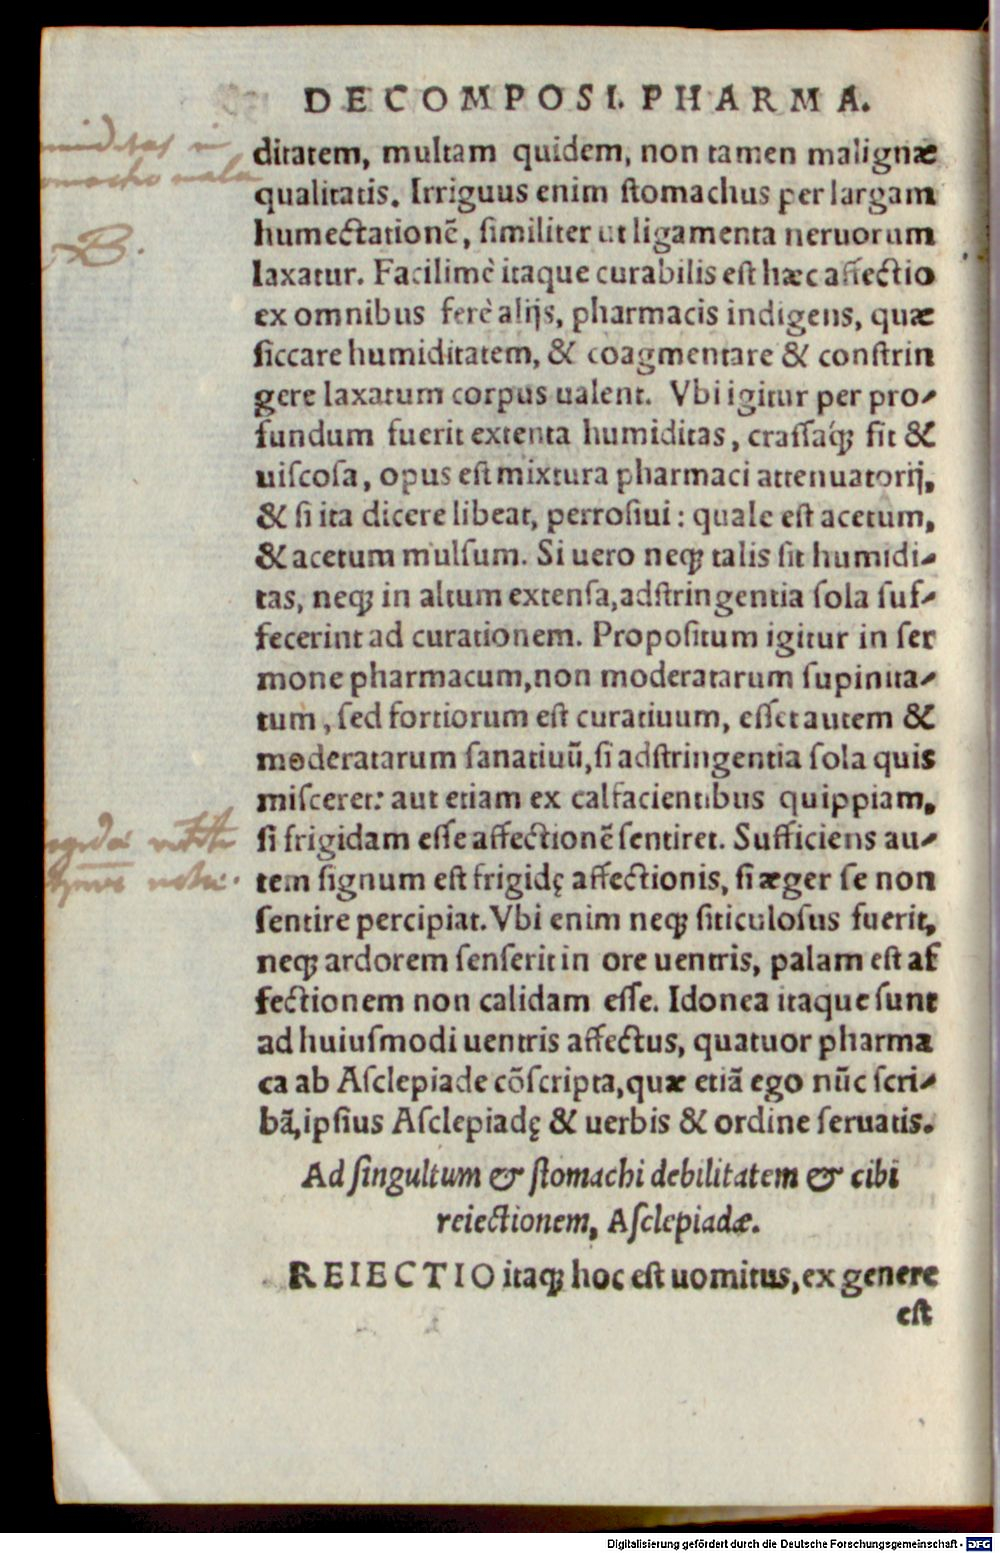 DE COMPOSI. PHARMA.
ditatem, multam quidem, non tamen malignæ
qualitatis. Irriguus enim ſtomachus per largam
humectationē, ſimiliter ut ligamenta neruorum
laxatur. Facilimè itaque curabilis eſt hæc affectio
ex omnibus ferè alijs, pharmacis indigens, quæ
ſiccare humiditatem, & coagmentare & conſtrin
gere laxatum corpus ualent. Vbi igitur per pro-
fundum fuerit extenta humiditas, craſſáq; ſit &
uiſcoſa, opus eſt mixtura pharmaci attenuatorij,
& ſi ita dicere libeat, perroſiui: quale eſt acetum,
& acetum mulſum. Si uero neq; talis ſit humidi-
tas, neq; in altum extenſa, adſtringentia ſola ſuf-
fecerint ad curationem. Propoſitum igitur in ſer
mone pharmacum, non moderatarum ſupinita-
tum, ſed fortiorum eſt curatiuum, eſſet autem &
moderatarum ſanatiuū, ſi adſtringentia ſola quis
miſceret: aut etiam ex calfacientibus quippiam,
ſi frigidam eſſe affectionē ſentiret. Sufficiens au-
tem ſignum eſt frigidę affectionis, ſi æger ſe non
ſentire percipiat. Vbi enim neq; ſiticuloſus fuerit,
neq; ardorem ſenſerit in ore uentris, palam eſt af
fectionem non calidam eſſe. Idonea itaque ſunt
ad huiuſmodi uentris affectus, quatuor pharma
ca ab Aſclepiade cōſcripta, quæ etiā ego nūc ſcri-
bā, ipſius Aſclepiadę & uerbis & ordine ſeruatis.
Ad ſingultum & ſtomachi debilitatem & cibi
reiectionem, Aſclepiadæ.
REIECTIO itaq; hoc eſt uomitus, ex genere
eſt
B.
Digitalisierung gefördert durch die Deutsche Forschungsgemeinschaft - DFG